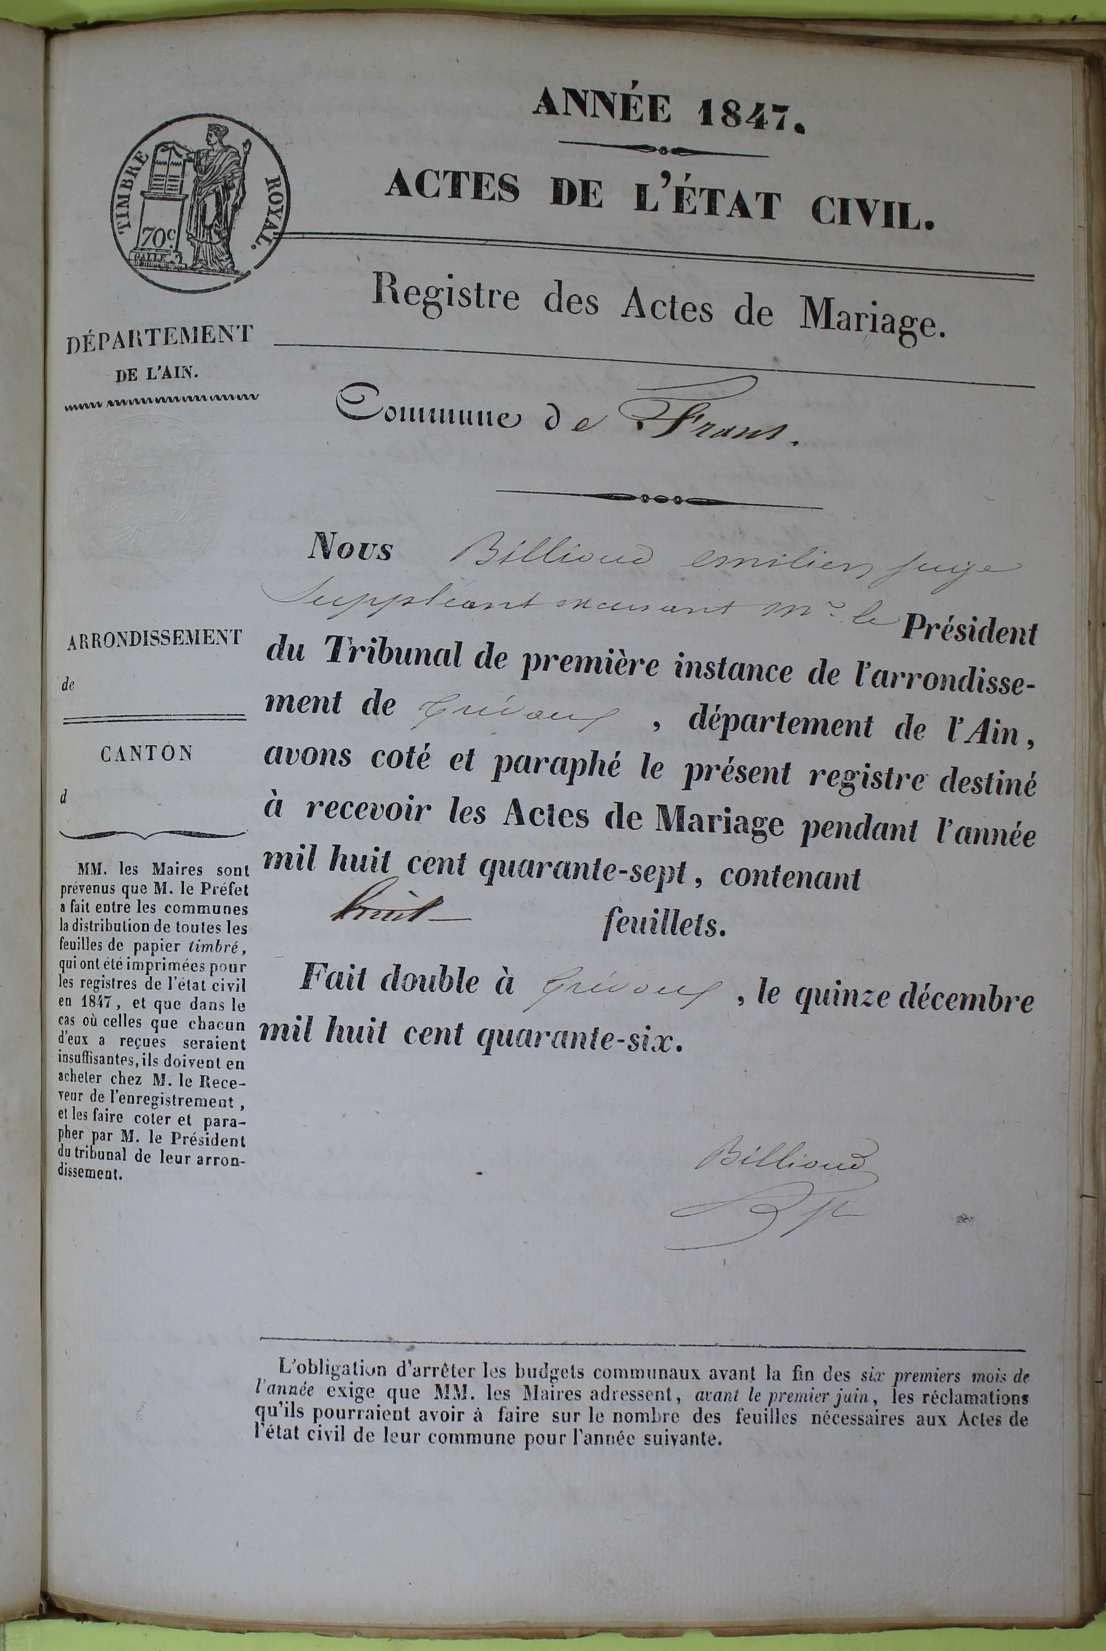 ANNÉE 1847.
ACTES DE L'ÉTAT CIVIL.
TIMBRE ROYAL.
70c
Registre des Actes de Mariage.
DÉPARTEMENT
DE L'AIN.
Commune de Frans.
Nous Billioud emilien juge
Suppléant Mr le Président
du Tribunal de première instance de l'arrondisse-
ment de Trévoux, département de l'Ain,
avons coté et paraphé le présent registre destiné
à recevoir les Actes de Mariage pendant l'année
mil huit cent quarante-sept, contenant
huit feuillets.
Fait double à Trévoux, le quinze décembre
mil huit cent quarante-six.
Billioud
ARRONDISSEMENT
de
CANTON
d
MM. les Maires sont
prévenus que M. le Préfet
a fait entre les communes
la distribution de toutes les
feuilles de papier timbré,
qui ont été imprimées pour
les registres de l'état civil
en 1847, et que dans le
cas où celles que chacun
d'eux a reçues seraient
insuffisantes, ils doivent en
acheter chez M. le Rece-
veur de l'enregistrement,
et les faire coter et para-
pher par M. le Président
du tribunal de leur arron-
dissement.
L'obligation d'arrêter les budgets communaux avant la fin des six premiers mois de
l'année exige que MM. les Maires adressent, avant le premier juin, les réclamations
qu'ils pourraient avoir à faire sur le nombre des feuilles nécessaires aux Actes de
l'état civil de leur commune pour l'année suivante.